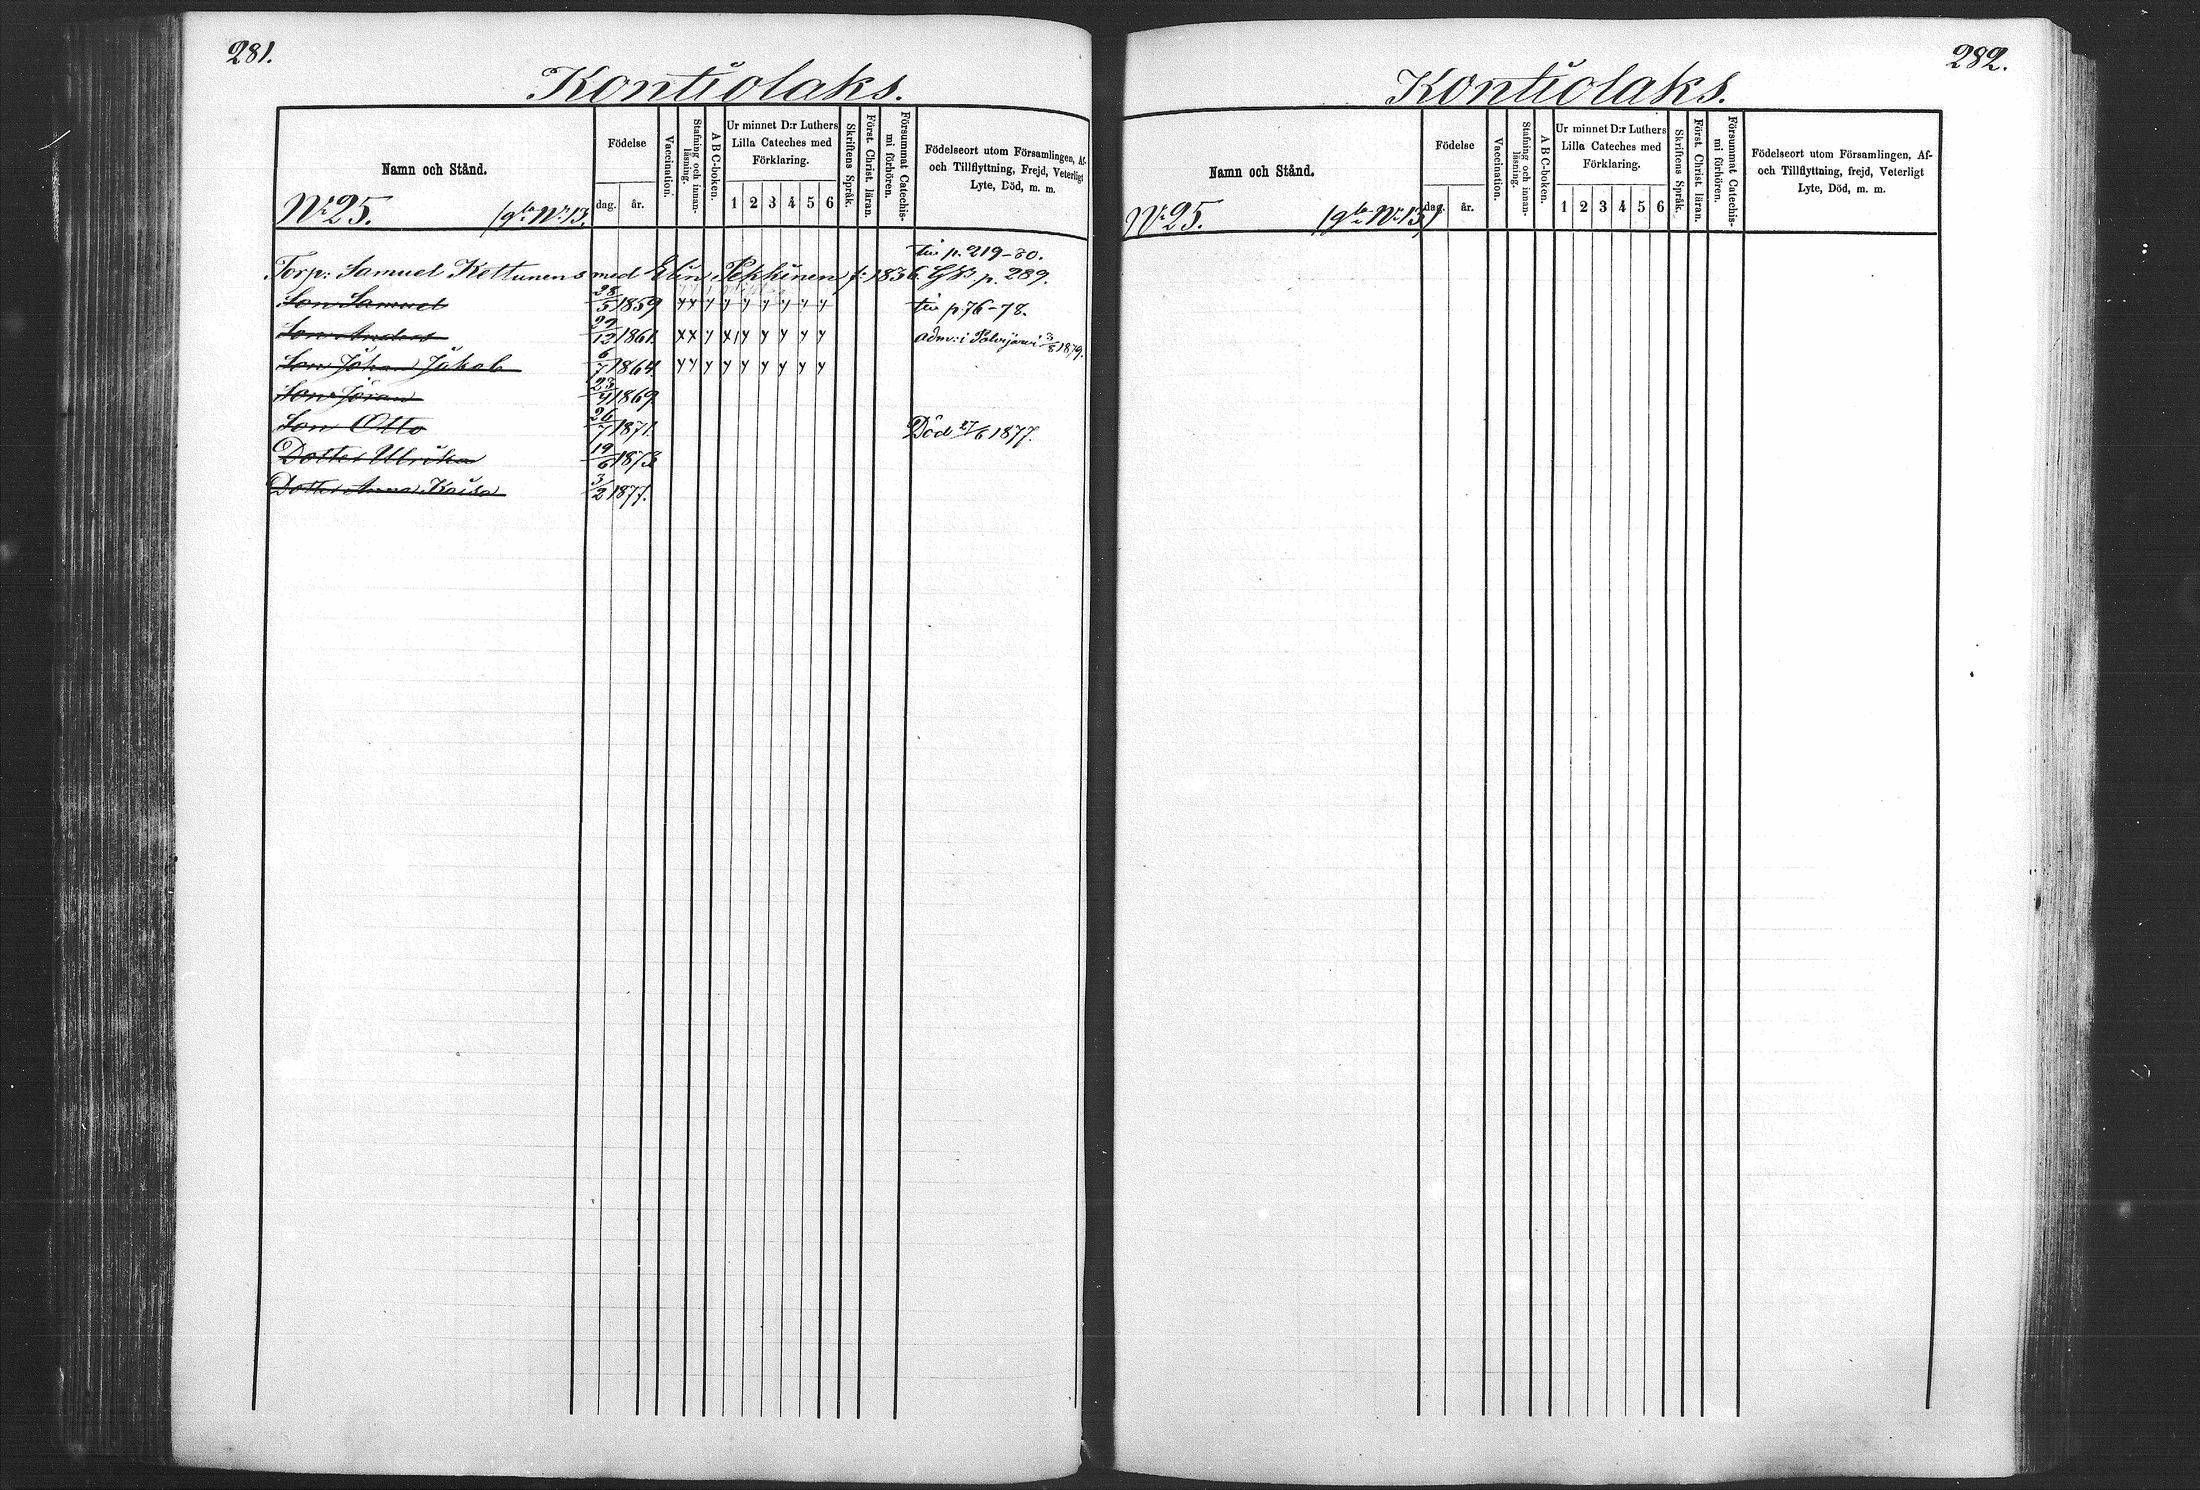 281.
Kontiolaks.
Namn och Stånd.
Födelse
dag. år.
Vaccination.
Stafning och innanläsning.
A B C-boken.
Ur minnet D:r Luthers Lilla Cateches med Förklaring.
1 2 3 4 5 6
Skriftens Språk.
Först. Christ. läran.
Försummat Catechismi förhören.
Födelseort utom Församlingen, Af- och Tillflyttning, Frejd, Veterligt Lyte, Död, m. m.
N:25. 19 N:13.
till p. 219-30.
Torp: Samuel Kottunens med Elin Pekkinen f: 1836. GB p. 289.
Son Samuel 28/5 1859 till p 76-78.
Son Anders 29/12 1861. adm: i Polvijärvi 3/8 1879.
Son Johan Jakob 6/7 1864.
Son Jöran 23/4 1869
Son Otto 26/7 1871. Död 27/6 1877.
Dotter Ulrika 19/6 1873
Dotter Anna Kaisa 3/2 1877.
282.
Kontiolaks.
Namn och Stånd.
Födelse
dag. år.
Vaccination.
Stafning och innanläsning.
A B C-boken.
Ur minnet D:r Luthers Lilla Cateches med Förklaring.
1 2 3 4 5 6
Skriftens Språk.
Först. Christ. läran.
Försummat Catechismi förhören.
Födelseort utom Församlingen, Af- och Tillflyttning, frejd, Veterligt Lyte, Död, m. m.
N:25. 19 N:13.